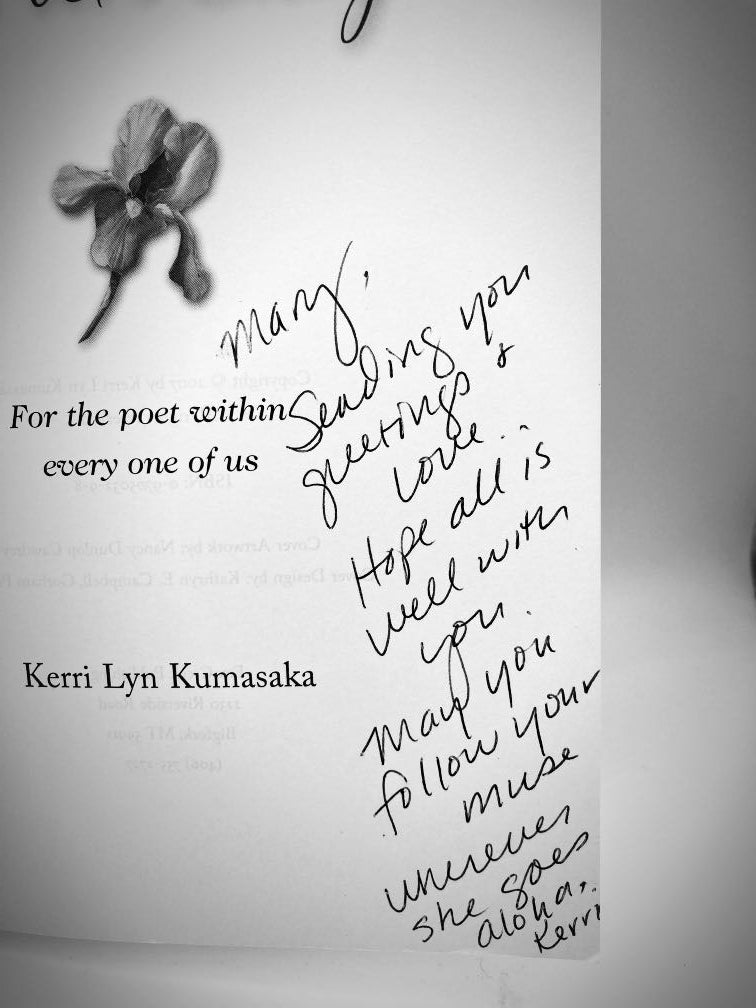 For the poet within
every one of us
Kerri Lyn Kumasaka
Mary,
Sending you
greetings &
love..
Hope all is
well with
you.
May you
follow your
muse
wherever
she goes
aloha,
Kerri